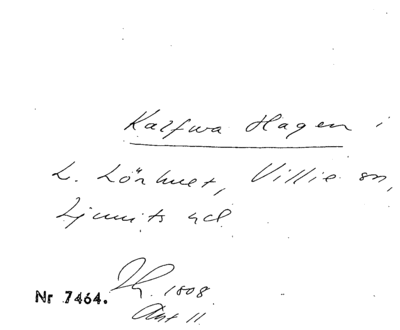 Kalfwa Hagen i
L. Lörhuet, Villie sn,
Ljunits hd
Nr 7464. 1808
Akt 11